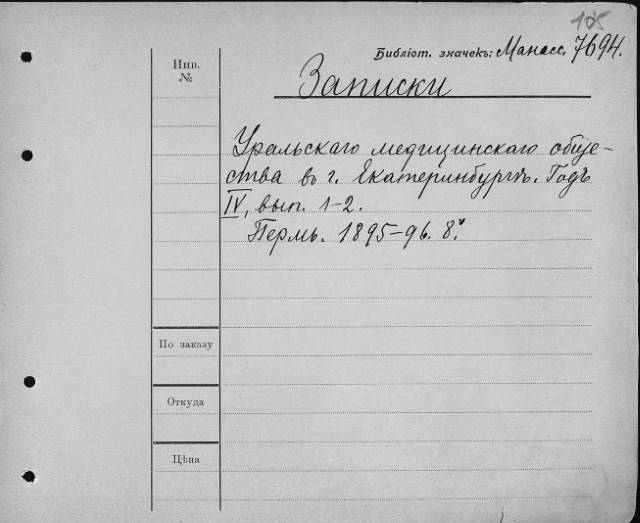 105
Библіот. значекъ: Манасс. 7694.
Инв.
№
Записки
Уральскаго медицинскаго обще-
ства въ г. Екатеринбургѣ. Годъ
IV, вып. 1-2.
Пермь. 1895-96. 8°.
По заказу
Откуда
Цѣна